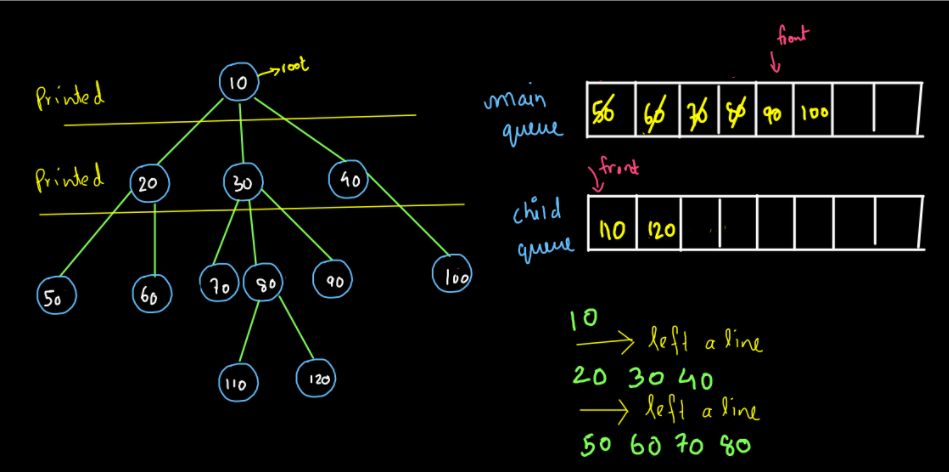 Printed
10 → root
Printed
20 30 40
50 60 70 80 90 100
110 120
front
main queue
50 60 70 80 90 100
front
child queue
110 120
10
→ left a line
20 30 40
→ left a line
50 60 70 80